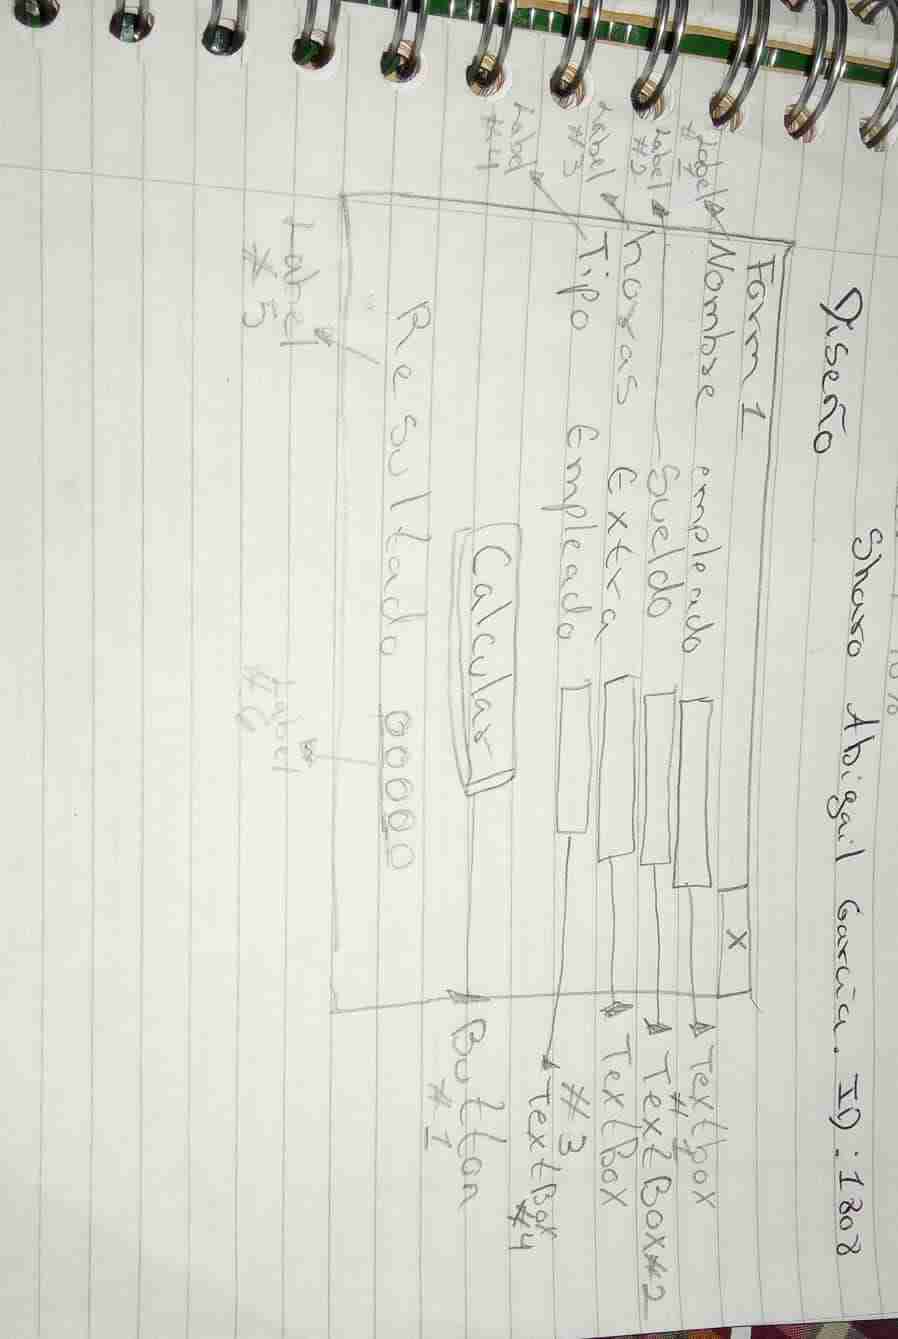 Diseño
Sharo Abigail García. ID: 1808
10%
Form 1
X
Label #1
Nombre empleado
Textbox #1
Label #2
Sueldo
TextBox #2
Label #3
horas Extra
TextBox #3
Label #4
Tipo Empleado
TextBox #4
Calcular
Button #1
Resultado 00000
Label #5
Label #6